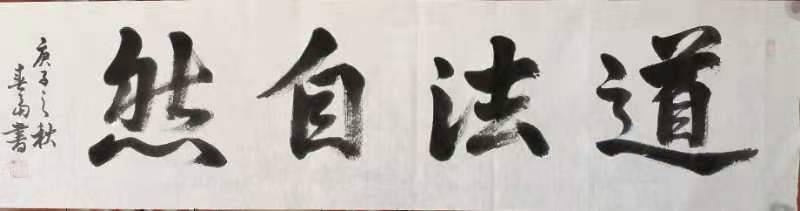 道法自然
庚子之秋
春雨書